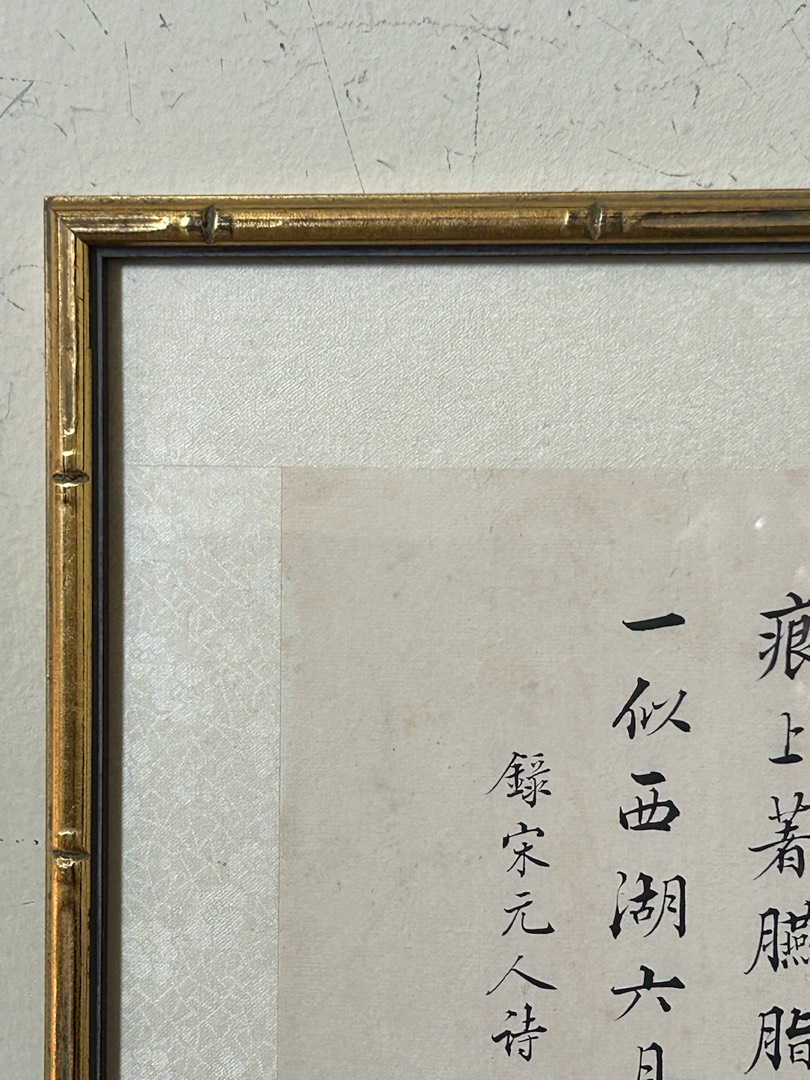 痕上著臙脂
一似西湖六月
錄宋元人詩